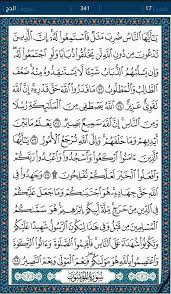 جزء 17
341
سورة الحج
يَٰٓأَيُّهَا ٱلنَّاسُ ضُرِبَ مَثَلٞ فَٱسۡتَمِعُواْ لَهُۥٓۚ إِنَّ ٱلَّذِينَ
تَدۡعُونَ مِن دُونِ ٱللَّهِ لَن يَخۡلُقُواْ ذُبَابٗا وَلَوِ ٱجۡتَمَعُواْ لَهُۥۖ
وَإِن يَسۡلُبۡهُمُ ٱلذُّبَابُ شَيۡـٔٗا لَّا يَسۡتَنقِذُوهُ مِنۡهُۚ ضَعُفَ
ٱلطَّالِبُ وَٱلۡمَطۡلُوبُ ٧٣ مَا قَدَرُواْ ٱللَّهَ حَقَّ قَدۡرِهِۦٓۚ إِنَّ ٱللَّهَ
لَقَوِيٌّ عَزِيزٌ ٧٤ ٱللَّهُ يَصۡطَفِي مِنَ ٱلۡمَلَٰٓئِكَةِ رُسُلٗا
وَمِنَ ٱلنَّاسِۚ إِنَّ ٱللَّهَ سَمِيعُۢ بَصِيرٞ ٧٥ يَعۡلَمُ مَا بَيۡنَ
أَيۡدِيهِمۡ وَمَا خَلۡفَهُمۡۚ وَإِلَى ٱللَّهِ تُرۡجَعُ ٱلۡأُمُورُ ٧٦ يَٰٓأَيُّهَا
ٱلَّذِينَ ءَامَنُواْ ٱرۡكَعُواْ وَٱسۡجُدُواْ وَٱعۡبُدُواْ رَبَّكُمۡ
وَٱفۡعَلُواْ ٱلۡخَيۡرَ لَعَلَّكُمۡ تُفۡلِحُونَ۩ ٧٧ وَجَٰهِدُواْ
فِي ٱللَّهِ حَقَّ جِهَادِهِۦۚ هُوَ ٱجۡتَبَىٰكُمۡ وَمَا جَعَلَ عَلَيۡكُمۡ
فِي ٱلدِّينِ مِنۡ حَرَجٖۚ مِّلَّةَ أَبِيكُمۡ إِبۡرَٰهِيمَۚ هُوَ سَمَّىٰكُمُ
ٱلۡمُسۡلِمِينَ مِن قَبۡلُ وَفِي هَٰذَا لِيَكُونَ ٱلرَّسُولُ شَهِيدًا عَلَيۡكُمۡ
وَتَكُونُواْ شُهَدَآءَ عَلَى ٱلنَّاسِۚ فَأَقِيمُواْ ٱلصَّلَوٰةَ وَءَاتُواْ ٱلزَّكَوٰةَ
وَٱعۡتَصِمُواْ بِٱللَّهِ هُوَ مَوۡلَىٰكُمۡۖ فَنِعۡمَ ٱلۡمَوۡلَىٰ وَنِعۡمَ ٱلنَّصِيرُ ٧٨
سُورَةُ المُؤْمِنُونَ